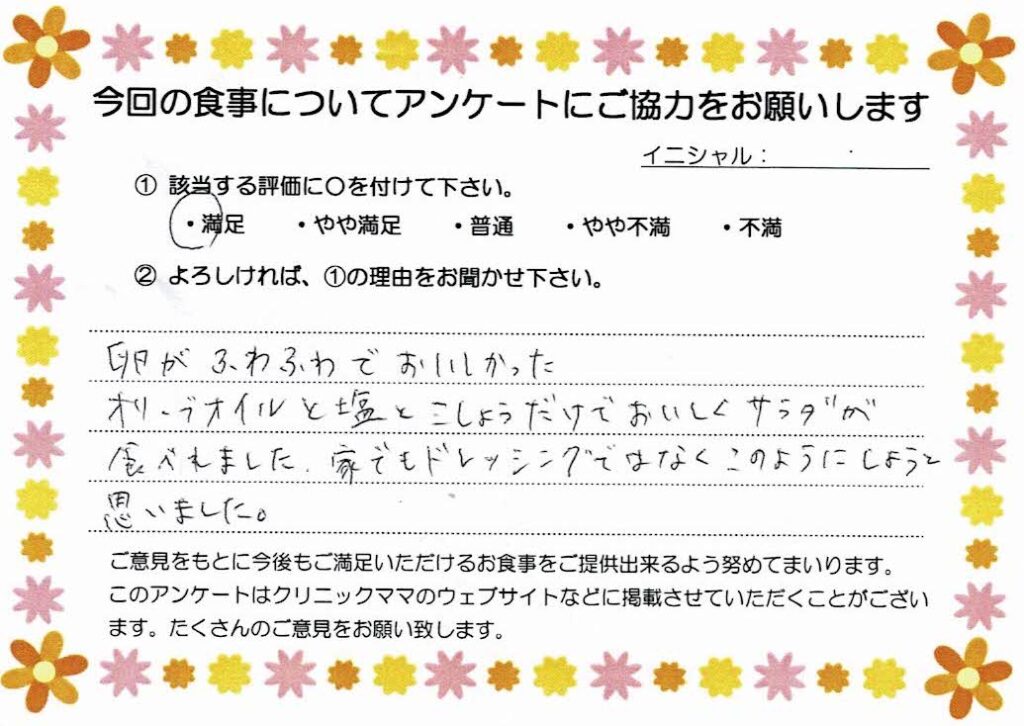 今回の食事についてアンケートにご協力をお願いします
イニシャル：
① 該当する評価に〇を付けて下さい。
・満足 ・やや満足 ・普通 ・やや不満 ・不満
② よろしければ、①の理由をお聞かせ下さい。
卵がふわふわでおいしかった
オリーブオイルと塩とこしょうだけでおいしくサラダが
食べれました、家でもドレッシングではなくこのようにしようと
思いました。
ご意見をもとに今後もご満足いただけるお食事をご提供出来るよう努めてまいります。
このアンケートはクリニックママのウェブサイトなどに掲載させていただくことがござい
ます。たくさんのご意見をお願い致します。